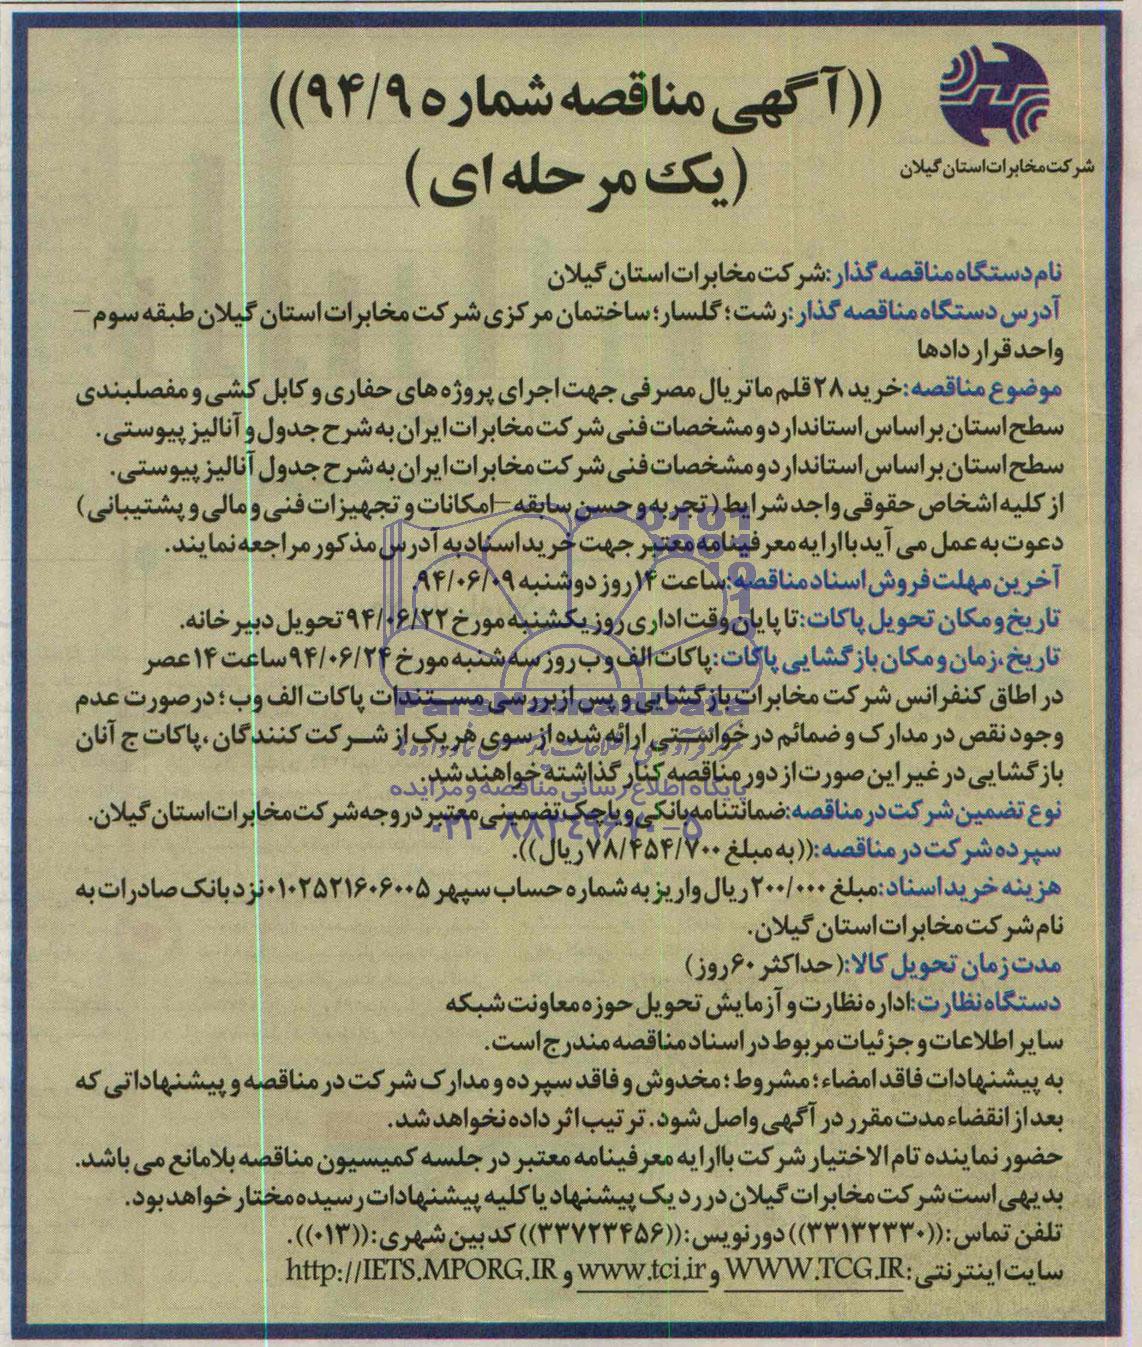 ((آگهی مناقصه شماره ۹۴/۹))
(یک مرحله ای)
شرکت مخابرات استان گیلان
نام دستگاه مناقصه گذار:شرکت مخابرات استان گیلان
آدرس دستگاه مناقصه گذار:رشت؛ گلسار؛ ساختمان مرکزی شرکت مخابرات استان گیلان طبقه سوم –
واحد قراردادها
موضوع مناقصه:خرید ۲۸ قلم ماتریال مصرفی جهت اجرای پروژه های حفاری و کابل کشی و مفصلبندی
سطح استان بر اساس استاندارد و مشخصات فنی شرکت مخابرات ایران به شرح جدول و آنالیز پیوستی.
سطح استان بر اساس استاندارد و مشخصات فنی شرکت مخابرات ایران به شرح جدول آنالیز پیوستی.
از کلیه اشخاص حقوقی واجد شرایط (تجربه و حسن سابقه –امکانات و تجهیزات فنی و مالی و پشتیبانی)
دعوت به عمل می آید با ارایه معرفینامه معتبر جهت خرید اسناد به آدرس مذکور مراجعه نمایند.
آخرین مهلت فروش اسناد مناقصه:ساعت ۱۴ روز دوشنبه ۹۴/۰۶/۰۹.
تاریخ و مکان تحویل پاکات:تا پایان وقت اداری روز یکشنبه مورخ ۹۴/۰۶/۲۲ تحویل دبیرخانه.
تاریخ،زمان و مکان بازگشایی پاکات:پاکات الف و ب روز سه شنبه مورخ ۹۴/۰۶/۲۴ ساعت ۱۴ عصر
در اطاق کنفرانس شرکت مخابرات بازگشایی و پس از بررسی مستندات پاکات الف و ب؛ در صورت عدم
وجود نقص در مدارک و ضمائم درخواستی ارائه شده از سوی هر یک از شرکت کنندگان، پاکات ج آنان
بازگشایی در غیر این صورت از دور مناقصه کنار گذاشته خواهند شد.
نوع تضمین شرکت در مناقصه:ضمانتنامه بانکی و یا چک تضمینی معتبر در وجه شرکت مخابرات استان گیلان.
سپرده شرکت در مناقصه:((به مبلغ ۷۸/۴۵۴/۷۰۰ ریال)).
هزینه خرید اسناد:مبلغ ۲۰۰/۰۰۰ ریال واریز به شماره حساب سپهر ۰۱۰۲۵۲۱۶۰۶۰۰۵ نزد بانک صادرات به
نام شرکت مخابرات استان گیلان.
مدت زمان تحویل کالا:(حداکثر ۶۰ روز)
دستگاه نظارت:اداره نظارت و آزمایش تحویل حوزه معاونت شبکه
سایر اطلاعات و جزئیات مربوط در اسناد مناقصه مندرج است.
به پیشنهادات فاقد امضاء؛ مشروط؛ مخدوش و فاقد سپرده و مدارک شرکت در مناقصه و پیشنهاداتی که
بعد از انقضاء مدت مقرر در آگهی واصل شود. ترتیب اثر داده نخواهد شد.
حضور نماینده تام الاختیار شرکت با ارایه معرفینامه معتبر در جلسه کمیسیون مناقصه بلامانع می باشد.
بدیهی است شرکت مخابرات گیلان در رد یک پیشنهاد یا کلیه پیشنهادات رسیده مختار خواهد بود.
تلفن تماس:((۳۳۱۳۲۳۳۰)) دورنویس:((۳۳۷۲۳۴۵۶)) کد بین شهری:((۰۱۳)).
سایت اینترنتی:WWW.TCG.IR و www.tci.ir و http://IETS.MPORG.IR
ParsNamadData
پایگاه اطلاع رسانی مناقصه و مزایده
۰۲۱-۸۸۳۴۹۶۷۰-۵